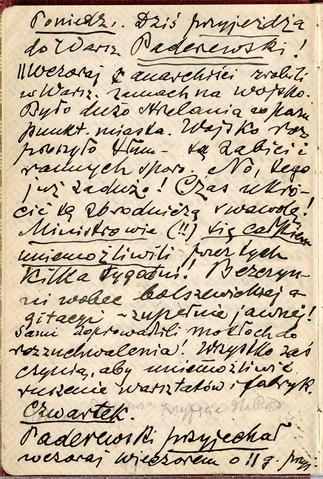 Poniedz. Dziś przyjeżdża
do Warsz. Paderewski!
Wczoraj anarchiści zrobili
w Warsz. zamach na wojsko.
Było dużo strzelania w paru
punkt. miasta. Wojsko roz
proszyło tłum – są zabici i
rannych sporo. No, tego
już zadużo! Czas ukró-
cić tą zbrodniczą swawolę!
Ministrowie (!!) się całkiem
uniemożliwili przez tych
kilka tygodni! Bezczyn-
ni wobec bolszewickiej a-
gitacyi – zupełnie jawnej!
Sami doprowadzili motłoch do
rozzuchwalenia! Wszystko zaś
czynią, aby uniemożliwić
ruszenie warsztatów i fabryk.
Czwartek.
Paderewski przyjechał
wczoraj wieczorem o 11 g. przyj